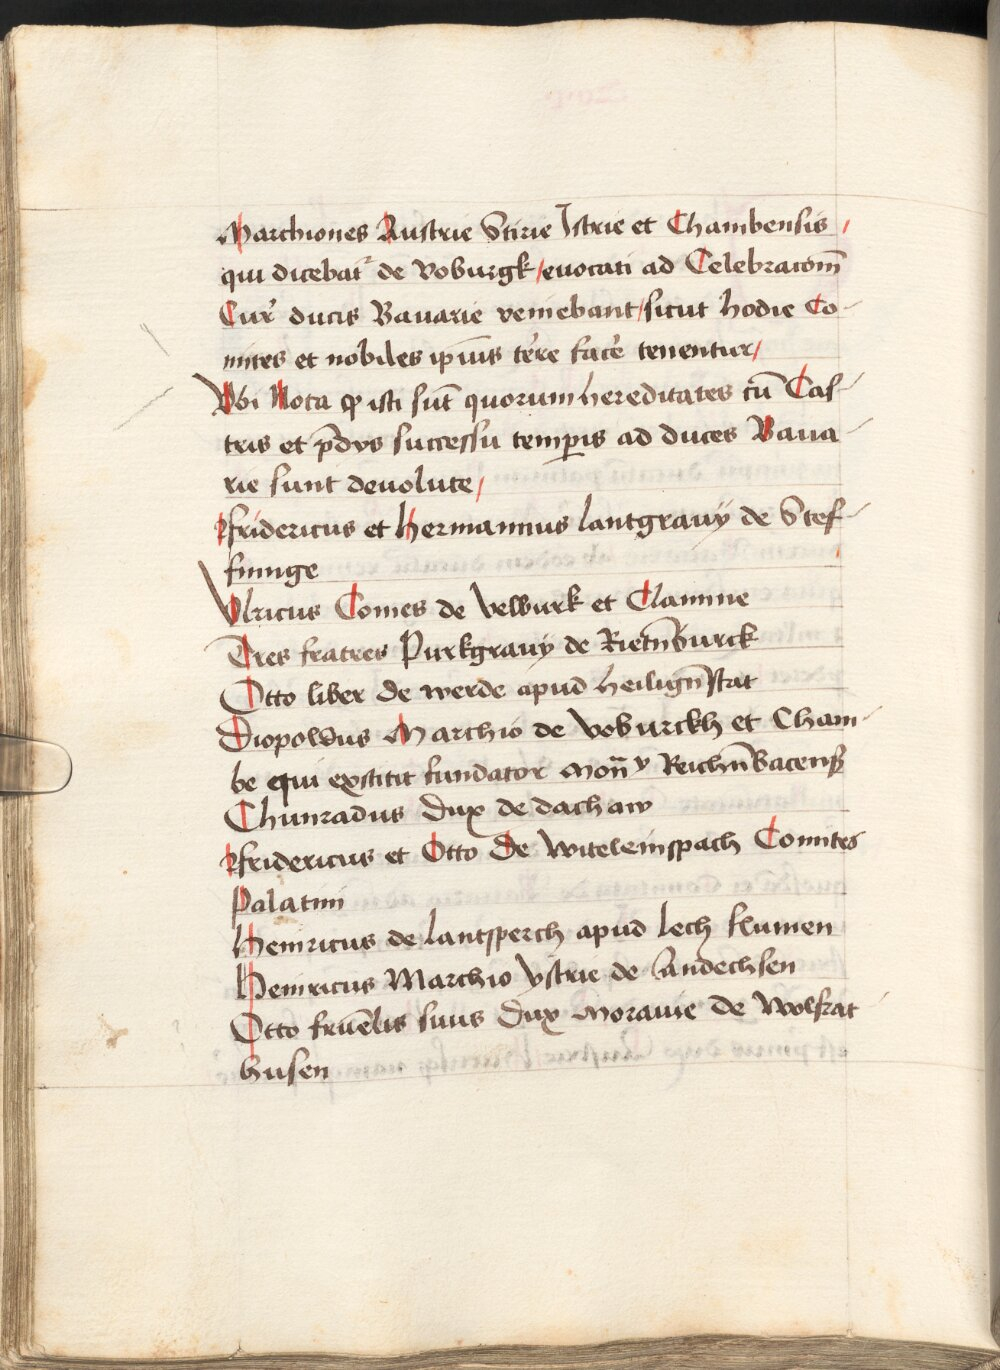 Marchiones Austrie Stirie Istrie et Chambensis /
qui dicebat᷑ de Voburgk / euocati ad Celebracōm̄
Cur̛ ducis Bauarie veniebant / sicut hodie Co-
mites et nobiles ip̄ius ter̛re fac̛e tenentur /
Vbi Nota ꝙ isti su̅t quorum hereditates cū Cas-
tris et p̄dys successu temꝑis ad duces Baua-
rie sunt deuolute /
Fridericus et Hermannus lantgrauÿ de Stef-
finnge
Vlricus Comes de velburk et Clamme
Tres fratres Purkgrauÿ de Rietn̄burck
Otto liber de werde apud heilign̄stat
Diopoldus Marchio de voburckh et Cham-
be qui exstitit fundator Mon̄ÿ Reichn̄bacens̛
Chunradus dux de dachaw
Fridericus et Otto de witeleinspach Comites
Palatini
Heinricus de lantsperch apud lech flumen
Heinricus Marchio ystrie de andechsen
Otto fruēlis suus dux Morauie de Wolfrat-
husen